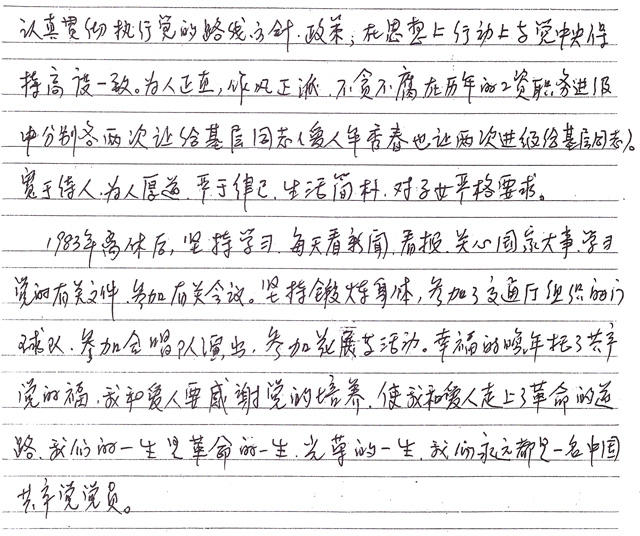 认真贯彻执行党的路线、方针、政策，在思想上行动上与党中央保
持高度一致。为人正直，作风正派，不贪不腐在历年的工资职务进级
中分别各两次让给基层同志（爱人年香春也让两次进级给基层同志）。
宽于待人，为人厚道，严于律己，生活简朴，对子女严格要求。
1983年离休后，坚持学习，每天看新闻，看报，关心国家大事，学习
党的有关文件，参加有关会议。坚持锻炼身体，参加了交通厅组织的门
球队，参加合唱队演出，参加花展等活动。幸福的晚年托了共产
党的福，我和爱人要感谢党的培养，使我和爱人走上了革命的道
路，我们的一生是革命的一生，光荣的一生，我们永远都是一名中国
共产党党员。